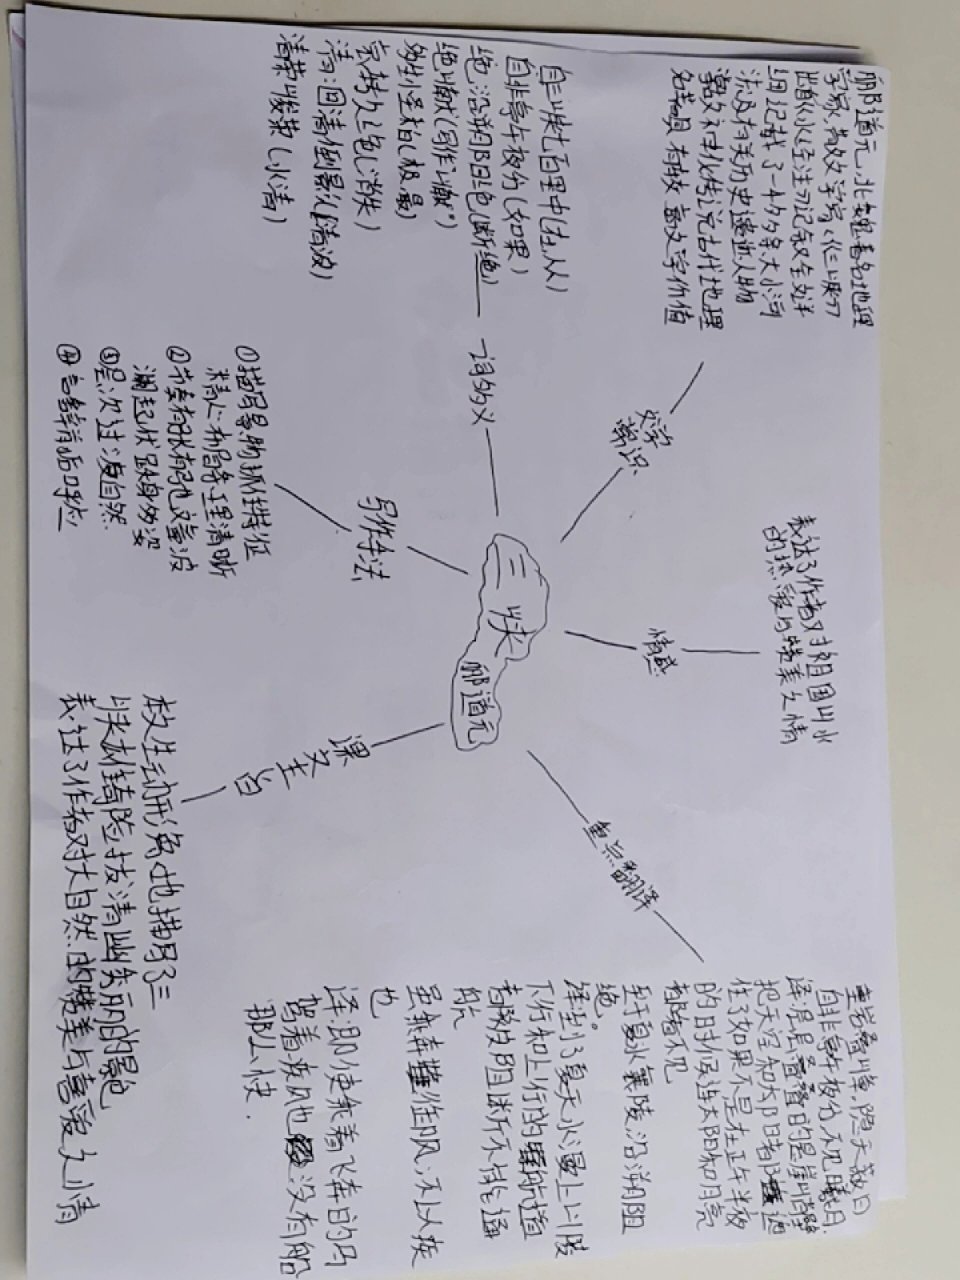 三峡
郦道元
文学
常识
郦道元，北魏著名地理
学家，散文学家《三峡》
出自《水经注》记叙全对
细记载了一千多条大小河
流及有关历史遗迹人物
名著具有较高文学价值
一词多义
自：自三峡七百里中（在，从）
自非亭午夜分（如果）
绝：沿溯阻绝（断绝）
绝巘（写作"巘"）
多生怪柏（极，最）
哀转久绝（消失）
清：回清倒影（清波）
清荣峻茂（水清）
写作手法
①描写景物抓住特征
②节奏有张有弛文章波
澜起伏跌身多姿
③层次过渡自然
④言辞前后呼应
情感
表达了作者对祖国山水
的热爱与赞美之情
课文主旨
本文生动形象地描写了三
峡雄奇险拔清幽秀丽的景色
表达了作者对大自然的赞美与喜爱之情
重点翻译
重岩叠嶂，隐天蔽日
自非亭午夜分，不见曦月
译：层层叠叠的悬崖峭壁
把天空和太阳都遮
住了如果不是在正午半夜
的时候连太阳和月亮
都看不见
至于夏水襄陵沿溯阻
绝。
译：到了夏天水漫上山陵
下行和上行的航道
都被阻断不能通
航
虽乘奔御风，不以疾
也
译：即使乘着飞奔的马
驾着疾风也没有船
那么快．